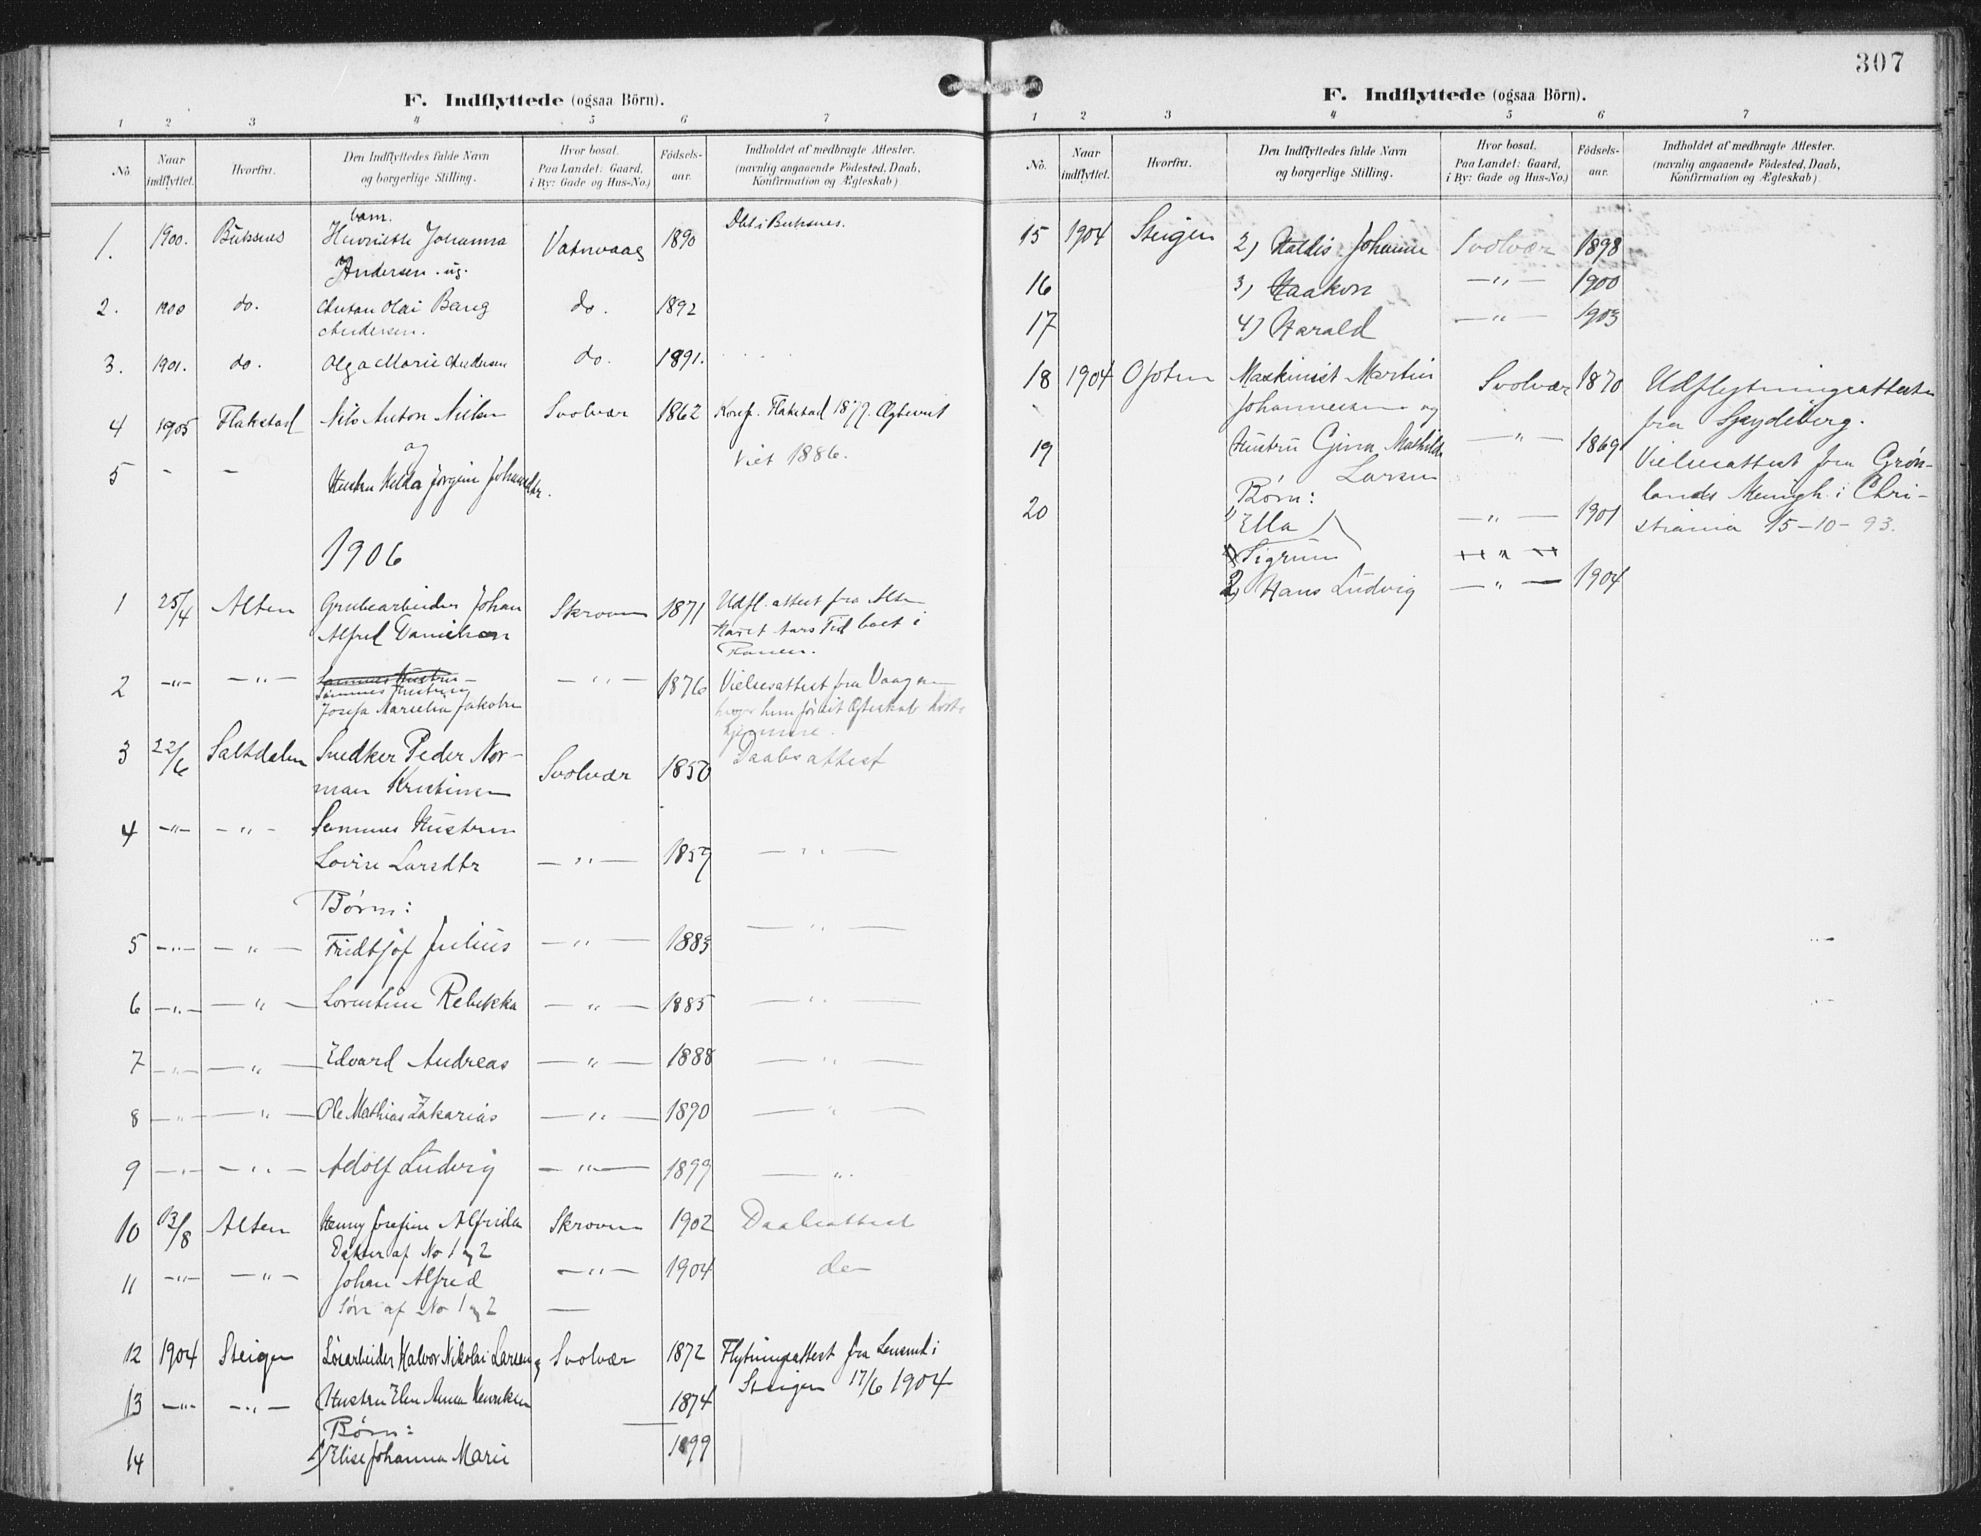 307
F. Indflyttede (ogsaa Börn).
1 2 3 4 5 6 7
No. Naar indflyttet. Hvorfra. Den Indflyttedes fulde Navn og borgerlige Stilling. Hvor bosat. Paa Landet: Gaard, i By: Gade og Hus-No.) Födsels-aar. Indholdet af medbragte Attester. (navnlig angaaende Födested, Daab, Konfirmation og Ægteskab)
1. 1900. Buksnes Henriette Johanna Vatnvaag 1890 Døbt i Buksnes.
Andersen. ug.
2. 1900 do. Anton Olai Bang do. 1892
Andersen.
3. 1901. do. Olga Marie Andersen do. 1891.
4 1905 Flakstad Nils Anton Nilsen Svolvær 1862 Konf. Flakstad 1877. Ægteviet
og
Viet 1886.
5 - - Hustru Hilda Jørgine Johansdtr.
1906
1 25/4 Alten Grubearbeider Johan Skroven 1871 Udfl. attest fra Alten
Alfred Danielsen Været tars Tid boet i
Ranen.
2 -"- -"- Sammes Hustru
Sammes Hustru -"- 1876 Vielsesattest fra Vaagan
Josefa Marselia Jakobsen
3 22/6 Saltdalen Snedker Peder Nor- Svolvær 1850 Daabsattest
man Kristiansen
4 -"- -"- Sammes Hustru
Lovise Larsdtr -"- 1859 -"-
Børn:
5 -"- -"- Fridtjof Julius -"- 1883 -"-
6 -"- -"- Lorentine Rebekka -"- 1885 -"-
7 -"- -"- Edvard Andreas -"- 1888 -"-
8 -"- -"- Ole Mathias Zakarias -"- 1890 -"-
9 -"- -"- Adolf Ludvig -"- 1899 -"-
10 13/8 Alten Henny Josefine Alfrida Skroven 1902 Daabsattest
Datter af No 1 og 2
11 -"- -"- Johan Alfred -"- 1904 do
Søn af No 1 og 2
12 1904 Steigen Løsarbeider Halvor Nikolai Larsen og Svolvær 1872 Flytningsattest fra Lensmd i
Steigen 17/6 1904
13 -"- -"- Hustru Elen Anna Henriksen 1874
Børn:
14 1) Elise Johanna Marie 1899
F. Indflyttede (ogsaa Börn).
1 2 3 4 5 6 7
No. Naar indflyttet. Hvorfra. Den Indflyttedes fulde Navn og borgerlige Stilling. Hvor bosat. Paa Landet: Gaard, i By: Gade og Hus-No.) Födsels-aar. Indholdet af medbragte Attester. (navnlig angaaende Födested, Daab, Konfirmation og Ægteskab)
15 1904 Steigen 2) Haldis Johanne Svolvær 1898
16 3) Haakon -"- 1900
17 4) Harald -"- 1903
18 1904 Ofoten Maskinist Martin Svolvær 1870 Udflytningsattest
Johannesen og fra Spydeberg.
19 Hustru Gina Mathilde -"- 1869 Vielsesattest fra Grøn-
Larsen lands Menigh. i Chri-
Børn:
20 1) Ella -"- 1901 stiania 15-10-93.
Sigrun -"-
2) Hans Ludvig -"- 1904